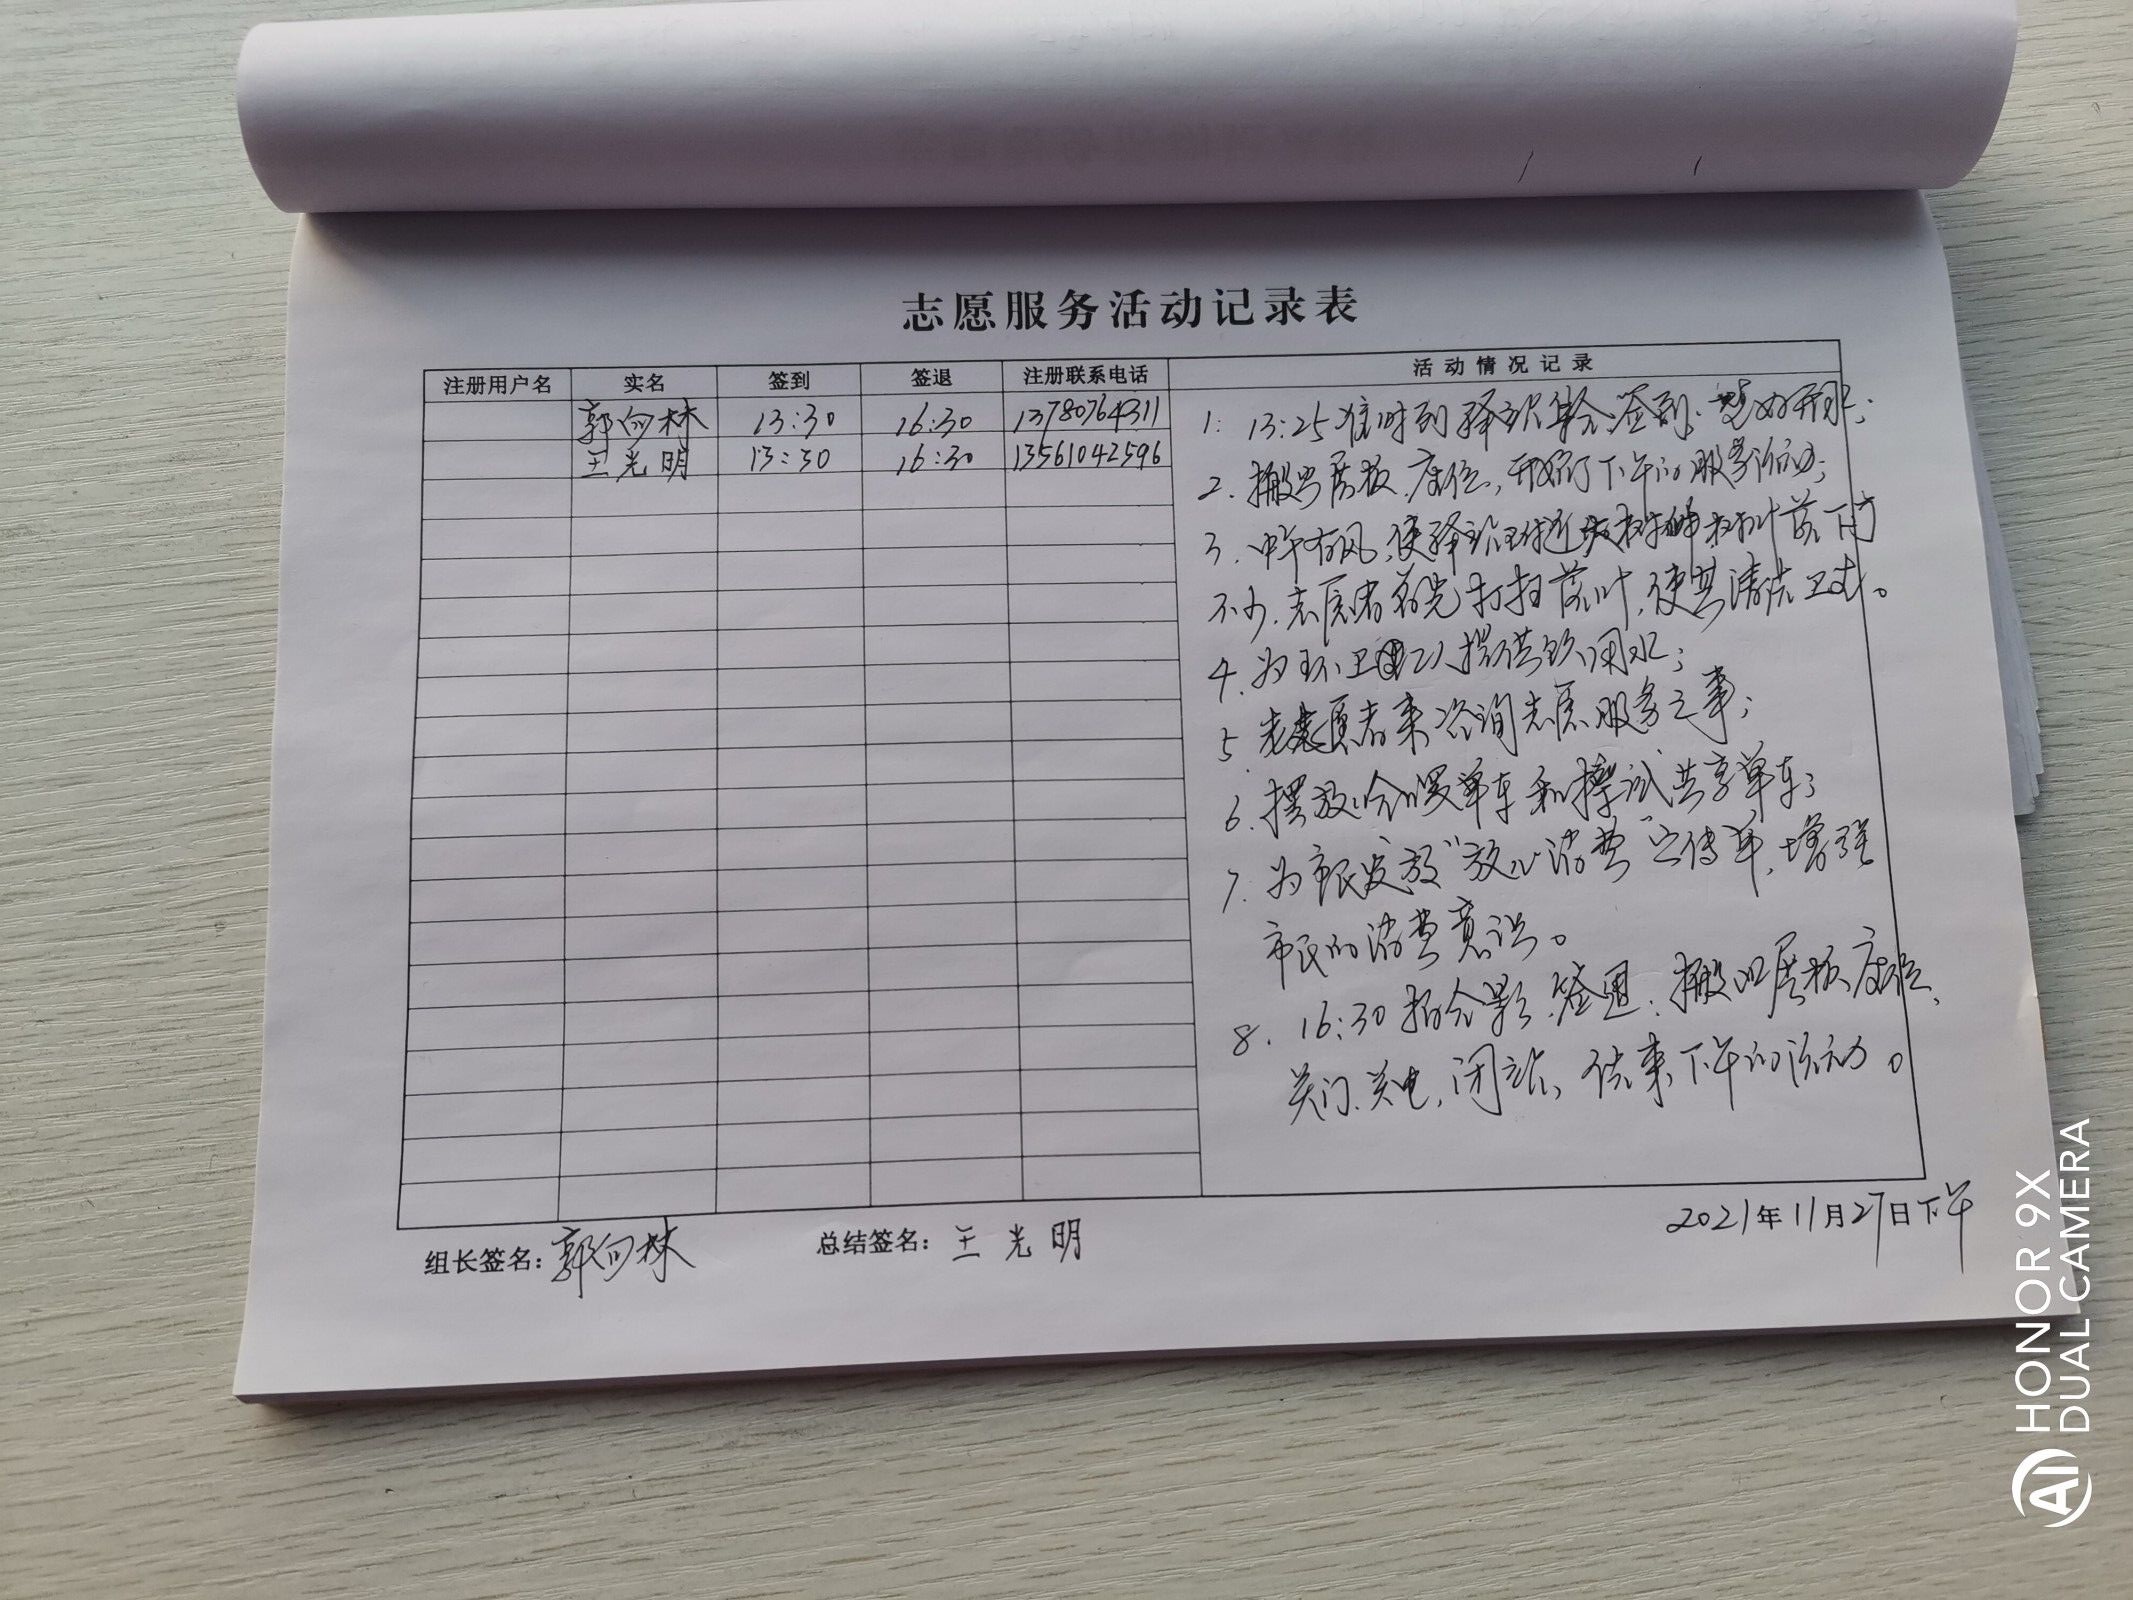 志愿服务活动记录表
注册用户名 实名 签到 签退 注册联系电话 活动情况记录
郭向林 13:30 16:30 13780764311
王光明 13:30 16:30 13561042596
1. 13:25准时到驿站集合、签到、烧好开水;
2. 搬出展板、座位,开始了下午的服务活动;
3. 中午有风,使驿站附近树叶落下
不少,志愿者首先打扫落叶,使其清洁卫生。
4. 为环卫工人提供饮用水;
5. 志愿者来咨询志愿服务之事;
6. 摆放哈啰单车和擦试共享单车;
7. 为市民发放"放心消费"宣传单,增强
市民的消费意识。
8. 16:30拍合影、签退、搬回展板、座位、
关门、关电,闭站,结束下午的活动。
组长签名:郭向林 总结签名:王光明 2021年11月27日下午
HONOR 9X
AI DUAL CAMERA